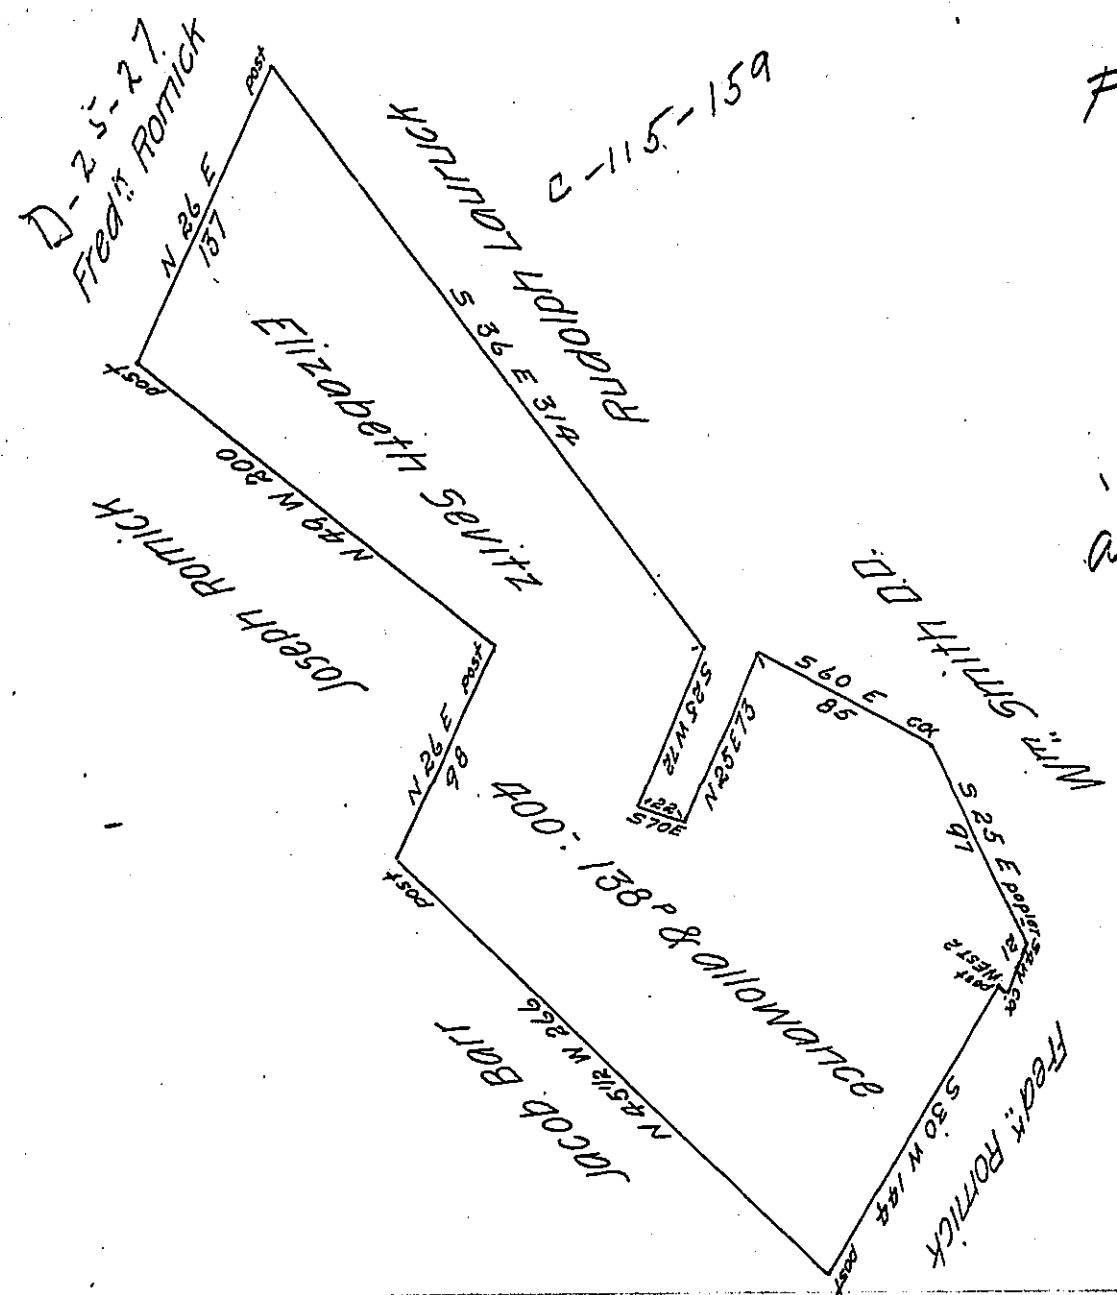 D-25-27.
Fred'k Romick
post
N 26 E
137
post
C-115-159
Rudolph Lauruck
S 36 E 314
Elizabeth Savitz
N 49 W 200
Joseph Romick
post
N 26 E
98
post
S 25 W 72
22
S 70 E
N 25 E 73
S 60 E
85
Wm. Smith D.D.
S 25 E
97
poplar
21
WEST 2
post
400 : 138 P & allowance
N 45 1/2 W 266
Jacob Barr
S 30 W 144
Fred'k Romick
post